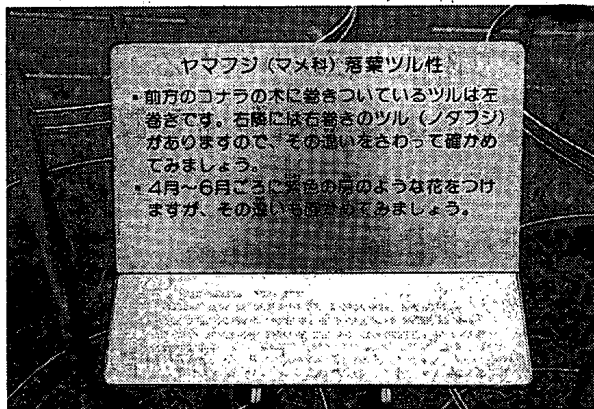 ヤマフジ（マメ科）落葉ツル性
▪前方のコナラの木に巻きついているツルは左
巻きです。右隣には右巻きのツル（ノダフジ）
がありますので、その違いをさわって確かめ
てみましょう。
▪4月～6月ごろに紫色の房のような花をつけ
ますが、その違いも確かめてみましょう。